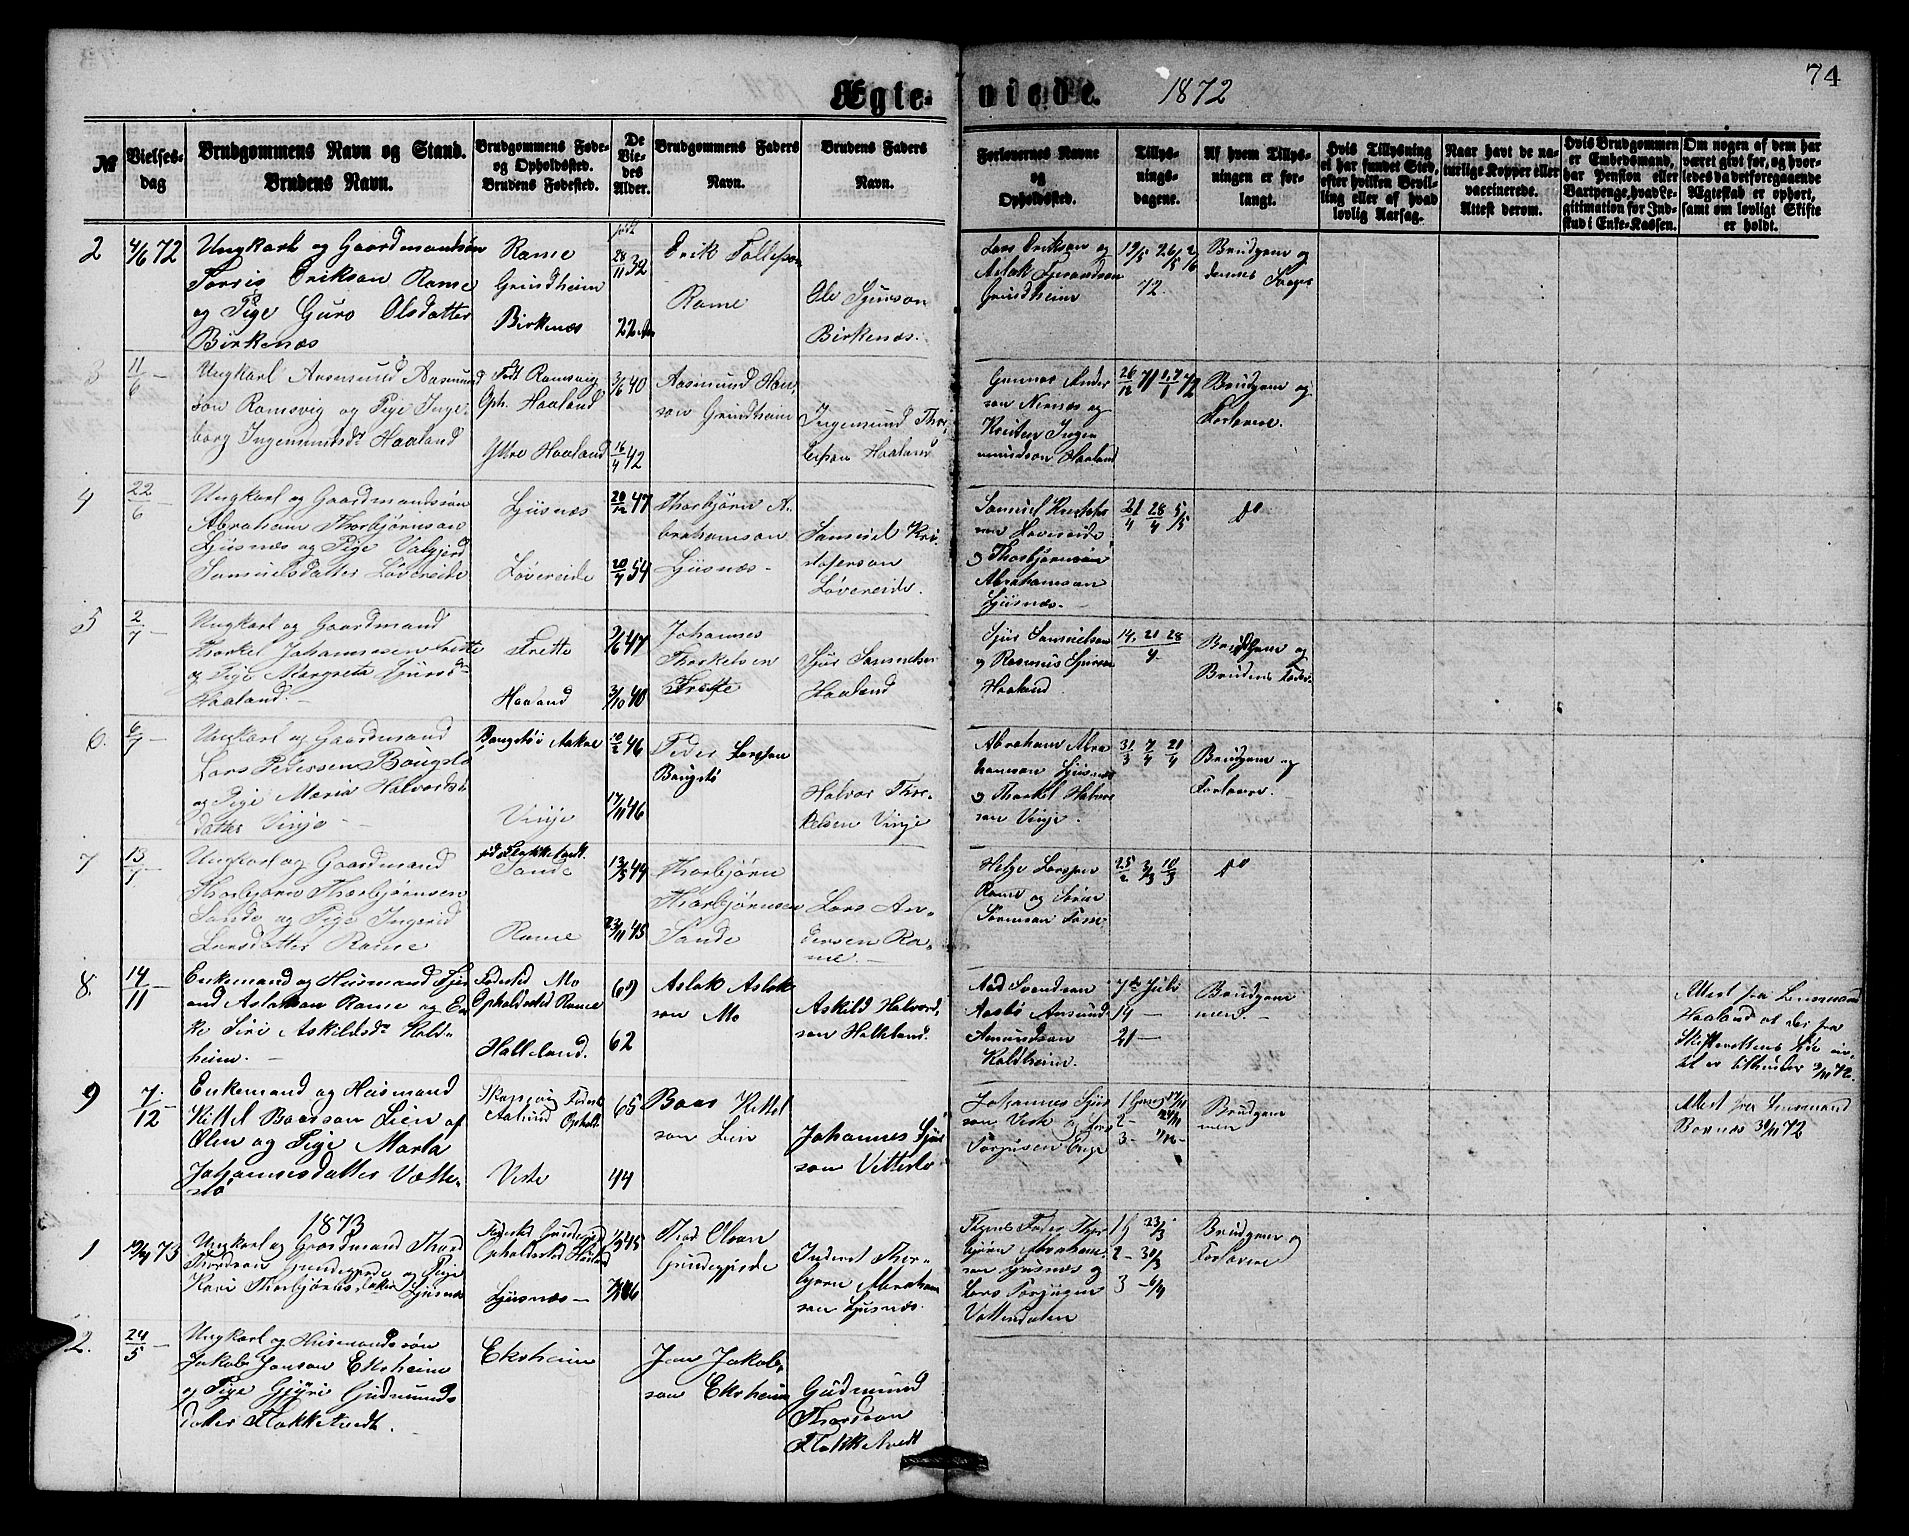 74
Ægte-
viede.
1872
№
Vielses-
dag
Brudgommens Navn og Stand.
Brudens Navn.
Brudgommens Føde-
og Opholdssted.
Brudens Fødested.
De
Vie-
des
Alder.
Brudgommens Faders
Navn.
Brudens Faders
Navn.
Forlovernes Navne
og
Opholdssted.
Tillys-
nings-
dagene.
Af hvem Tillys-
ningen er for-
langt.
Hvis Tillysning
ei har fundet Sted,
efter hvilken Bevil-
ling eller af hvad
lovlig Aarsag.
Naar havt de na-
turlige Kopper eller
vaccinerede.
Attest derom.
Hvis Brudgommen
er Embedsmand,
har Pension eller
Vartpenge, hvad Le-
gitimation for Ind-
skud i Enke-Kassen.
Om nogen af dem har
været givt før, og hvor-
ledes da det foregaaende
Ægteskab er ophørt,
samt om lovligt Skifte
er holdt.
2
4/6 72
Ungkarl og Gaardmandssøn
Torris Erikson Rame
og Pige Guro Olsdatter
Birkenæs
Rame
Grindheim
Birkenæs
født
28/11 32
22 Aar
Erik Tollefson
Rame
Ole Sjurson
Birkenæs.
Lars Erikson og
Aslak
Grindheim
19/5 26/5 2/6
72.
Brudgom og
dennes
3
11/6 —
Ungkarl Aasmund Aasmund
son Ramsvig og Pige Inge-
borg Ingemundsdr Haaland
Født Ramsvig
Oph. Haaland
Ytre Haaland
3/6 40
16/4 42
Aasmund Han
son Grindheim
Ingemund Thor
Haaland
Gunnar Ander
son og
Kristen Inge
mundson Haaland
26/12 71 1,7/1 72
Brudgom og
Forlovere.
4
22/6 —
Ungkarl og Gaardmandssøn
Abraham Thorbjørnson
Ljusnæs og Pige Valgjerd
Samuelsdatter Løvereide
Ljusnæs
Løvereide
20/12 47
20/7 54
Thorbjørn A-
brahamson
Ljusnæs —
Samuel Kri
stoferson
Løvereide.
Samuel Kristofer
son Løvereide
og Thorbjørnson
Abrahamson
Ljusnæs. —
21/4 28/4 5/5
do
5
2/7 —
Ungkarl og Gaardmand
Thorkel Johannessen Frette
og Pige Margreta Sjurs
Haaland. —
Frette
Haaland
9/6 47
3/10 40
Johannes
Thorkelsen
Frette
Sjur Samuelson
Haaland
Sjur Samuelson
og Rasmus Sjurson
Haaland
14, 21 28/4
Brudgom og
Brudens Fader
6.
6/7 —
Ungkarl og Gaardmand
Lars Pederssen Baugstø
og Pige Maria Halvords
datter Vinje —
Baugstø i Aakre
Vinje
10/2 46
17/11 46
Peder Larssen
Baugstø
Halvor Thor-
kelsen Vinje
Abraham Abra
hamson Ljusnæs
og Thorkel Halvor
son Vinje.
31/3 7/4 21/4
Brudgom og
Forlovere.
7
13/7 —
Ungkarl og Gaardmand
Thorbjørn Thorbjørnsen
Sande og Pige Ingerid
Larsdatter Rame
Sande
Rame
13/3 49
23/11 45
Thorbjørn
Thorbjørnsen
Sande
Lars An-
dersen Ra-
me. —
Helge Larssen
Rame og Søren
Sørenson Fosse
25/2 3/3 10/3
do
8.
14/11
Enkemand og Husmand
Aslakson Rame og En
ke Siri Askildsdr Kald-
heim. —
Fødested Mo
Opholdssted Rame
Halleland.
69
62
Aslak Aslak
son Mo
Askild Halvord,
son Halleland.
Aad Svendson
Aasbø
Aamundson
Kaldheim.
7de Juli
14 —
21 —
Brudgom
men. —
Attest fra Lensmand
Haaland at der fra
Skifterettens Side in-
tet er tilhinder 9/11 72.
9
7/12 —
Enkemand og Husmand
Kittel Baarson Lien af
Ølen og Pige Marta
Johannesdatter Vatte-
stø
Aalund Opholdt
Veste
65
44
Baar Kittel
son Lien
Johannes Sjur
son Vettestø
Johannes Sjur
son Vesk og Lars
Torjusen Enge
1 Gang 17/11
2 — 24/11
3 — 1/12 —
Brudgom
men
Attest fra Lensmand
Bornæs 30/11 72
1873
1
19/4 73
Ungkarl og Gaardmand Thord
Thordson Gundegjerde og Pige
Kari Thorbjørnsdatter Ljusnæs
Fødested Gundegjerde
Opholdssted Haaland
Ljusnæs —
45
46
Thord Olson
Gundegjerde
Inderst Thor-
bjørn Abraham
son Ljusnæs.
Pigens Fader Thor
bjørn Abraham-
son Ljusnæs og
Lars Torjusen
Vattedalen
1 G 23/3
2 — 30/3
3 — 6/4
Brudgom og
Forlovere
2.
24/5 —
Ungkarl og Husmandssøn
Jakob Janson Eksheim
og Pige Gjyri Gudmunds
datter Flakketvedt.
Eksheim
Jan Jakob-
son Eksheim
Gudmund
Thordson
Flakketvedt